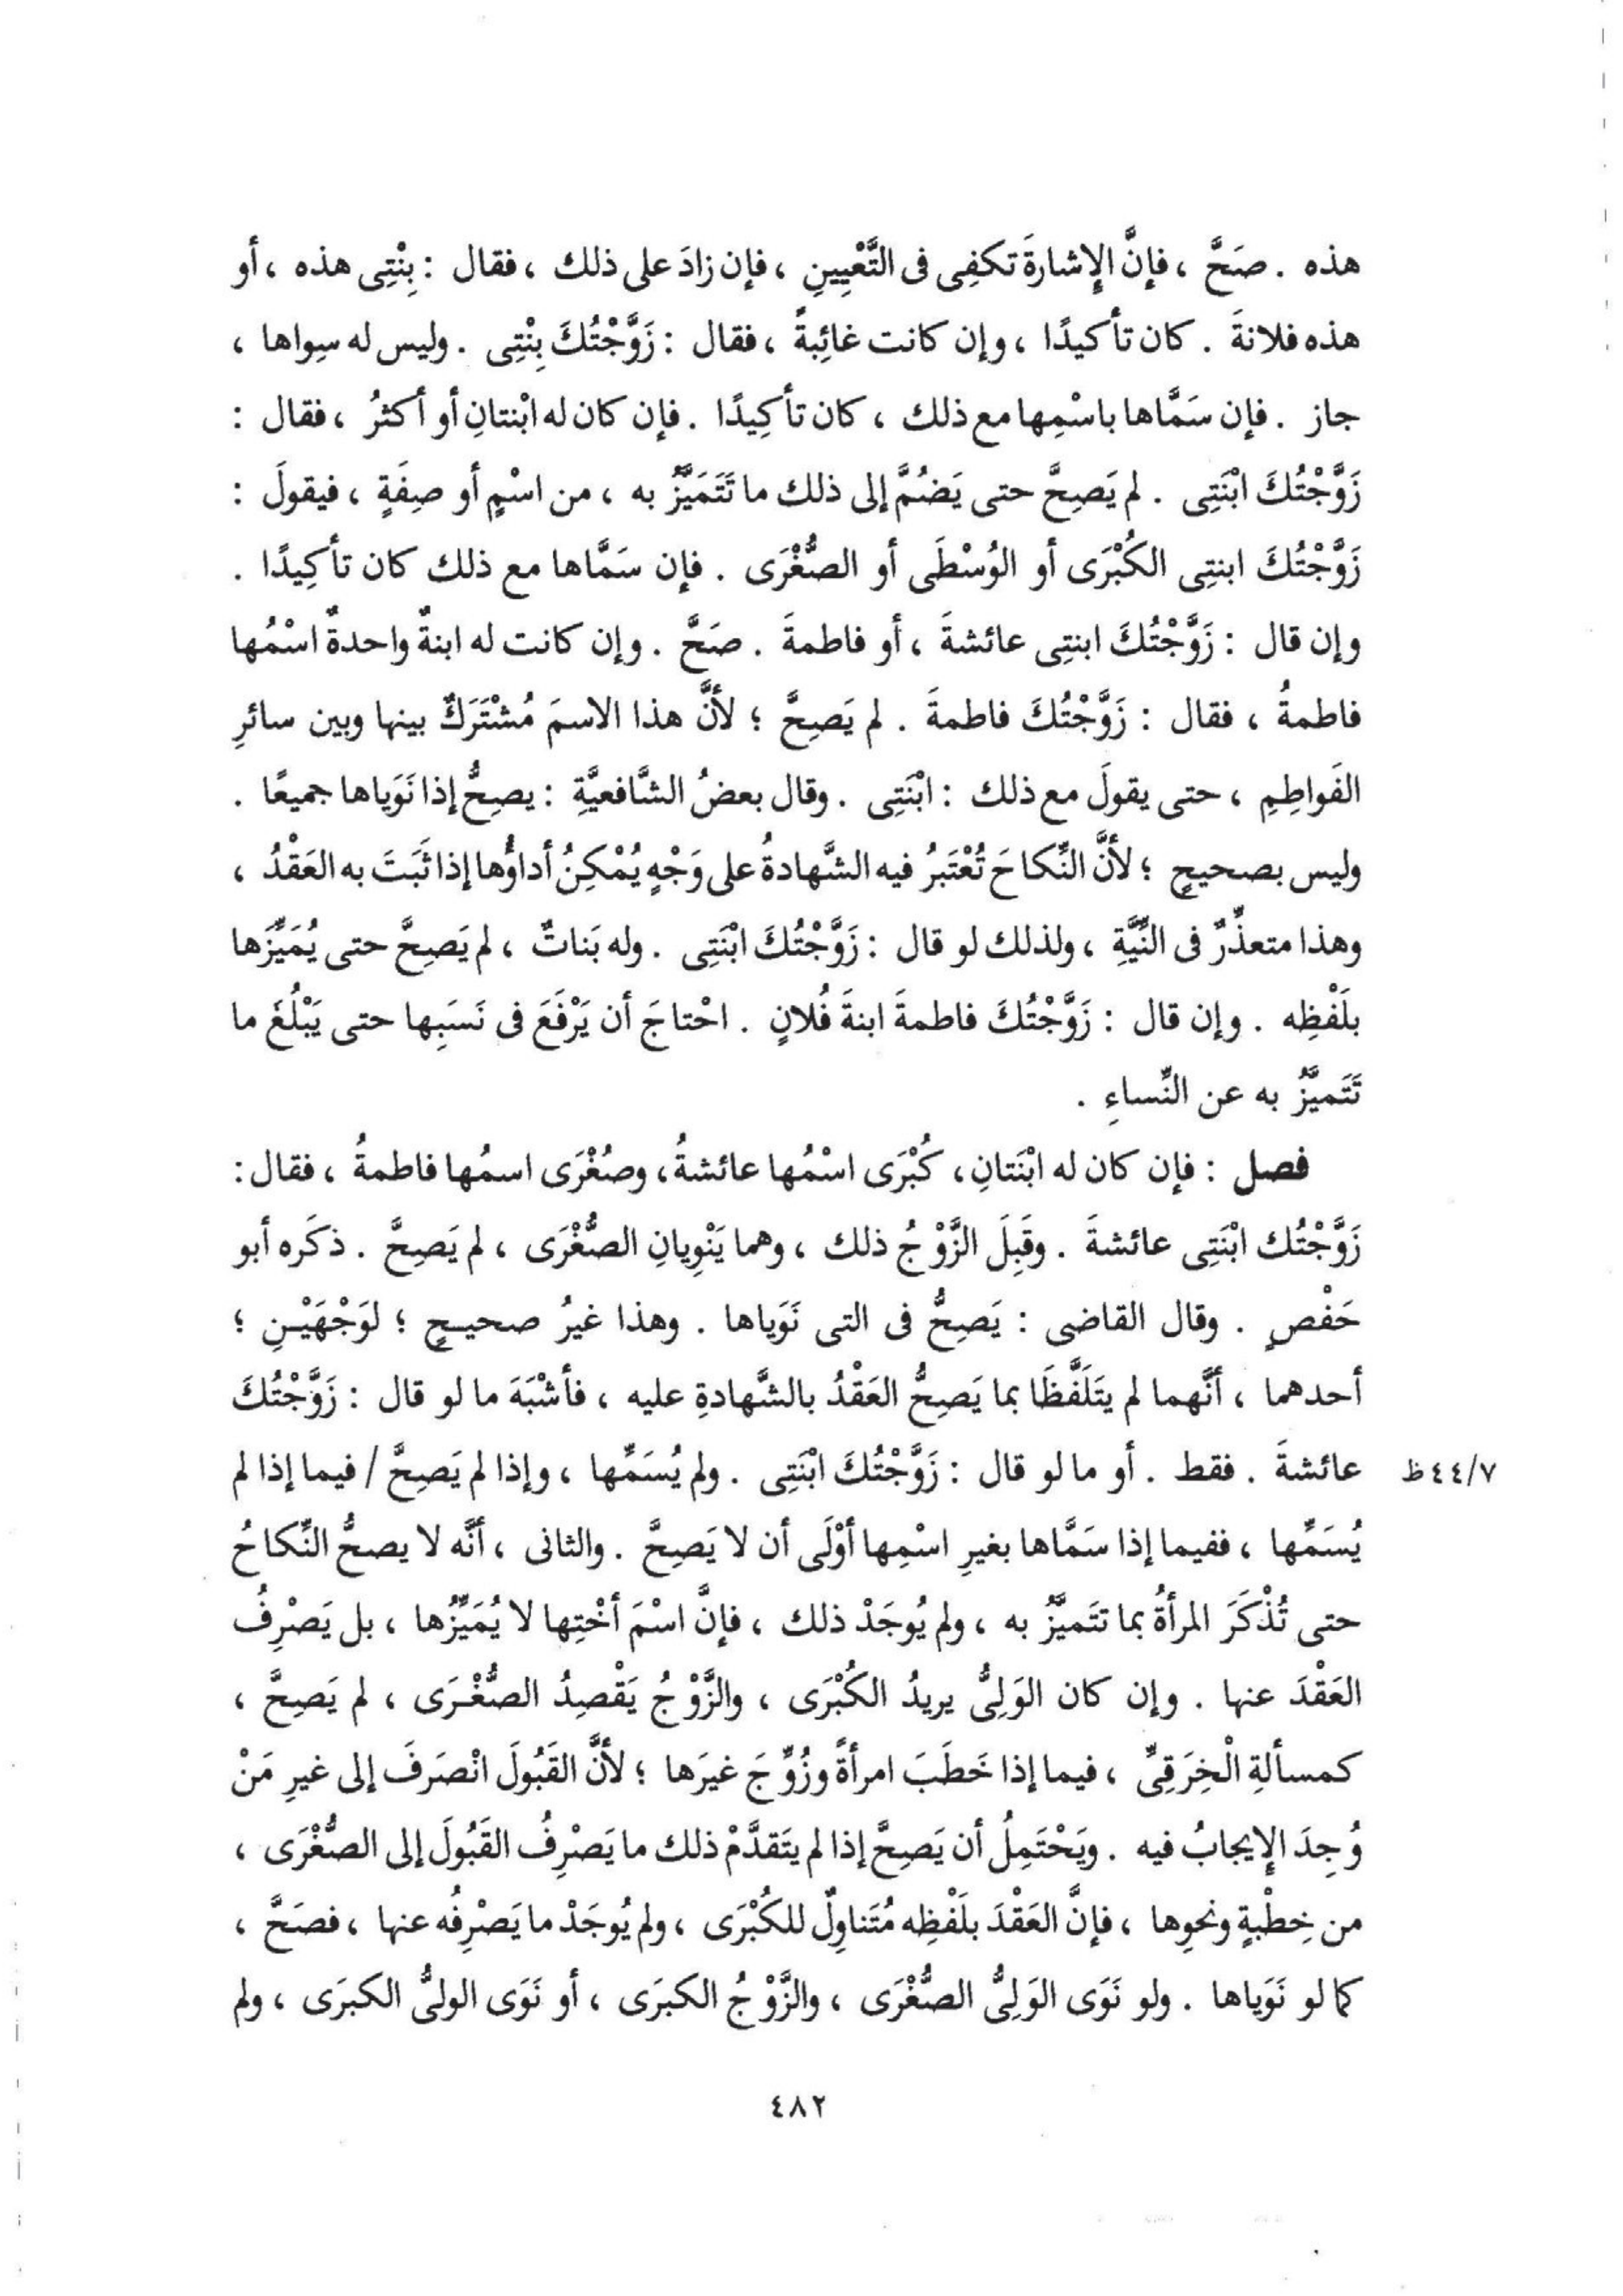 هذه . صَحَّ ، فإنَّ الإِشارةَ تكفِى فى التَّعْيِينِ ، فإن زادَ على ذلك ، فقال : بِنْتِى هذه ، أو
هذه فلانةَ . كان تأكيدًا ، وإن كانت غائِبةً ، فقال : زَوَّجْتُكَ بِنْتِى . وليس له سِواها ،
جاز . فإن سَمَّاها باسْمِها مع ذلك ، كان تأكِيدًا . فإن كان له ابْنتانِ أو أكثرُ ، فقال :
زَوَّجْتُكَ ابْنَتِى . لم يَصِحَّ حتى يَضُمَّ إلى ذلك ما تَتَمَيَّزُ به ، من اسْمٍ أو صِفَةٍ ، فيقولَ :
زَوَّجْتُكَ ابنتِى الكُبْرَى أو الوُسْطَى أو الصُّغْرَى . فإن سَمَّاها مع ذلك كان تأكِيدًا .
وإن قال : زَوَّجْتُكَ ابنتِى عائشةَ ، أو فاطمةَ . صَحَّ . وإن كانت له ابنةٌ واحدةٌ اسْمُها
فاطمةُ ، فقال : زَوَّجْتُكَ فاطمةَ . لم يَصِحَّ ؛ لأنَّ هذا الاسمَ مُشْتَرَكٌ بينها وبين سائرِ
الفَواطِمِ ، حتى يقولَ مع ذلك : ابْنَتِى . وقال بعضُ الشَّافعيَّةِ : يصِحُّ إذا نَوَياها جميعًا .
وليس بصحيحٍ ؛ لأنَّ النِّكاحَ تُعْتَبَرُ فيه الشَّهادةُ على وَجْهٍ يُمْكِنُ أداؤُها إذا ثَبَتَ به العَقْدُ ،
وهذا متعذِّرٌ فى النِّيَّةِ ، ولذلك لو قال : زَوَّجْتُكَ ابْنَتِى . وله بَناتٌ ، لم يَصِحَّ حتى يُمَيِّزَها
بلَفْظِه . وإن قال : زَوَّجْتُكَ فاطمةَ ابنةَ فُلانٍ . احْتاجَ أن يَرْفَعَ فى نَسَبِها حتى يَبْلُغَ ما
تَتَميَّزُ به عن النِّساءِ .
فصل : فإن كان له ابْنَتانِ، كُبْرَى اسْمُها عائشةُ، وصُغْرَى اسمُها فاطمةُ ، فقال:
زَوَّجْتُك ابْنَتِى عائشةَ . وقَبِلَ الزَّوْجُ ذلك ، وهما يَنْوِيانِ الصُّغْرَى ، لم يَصِحَّ . ذكَره أبو
حَفْصٍ . وقال القاضى : يَصِحُّ فى التى نَوَياها . وهذا غيرُ صحيحٍ ؛ لوَجْهَيْنِ ؛
أحدهما ، أنَّهما لم يتَلَفَّظَا بما يَصِحُّ العَقْدُ بالشَّهادةِ عليه ، فأشْبَهَ ما لو قال : زَوَّجْتُكَ
عائشةَ . فقط . أو ما لو قال : زَوَّجْتُكَ ابْنَتِى . ولم يُسَمِّها ، وإذا لم يَصِحَّ / فيما إذا لم ٤٤/٧ظ
يُسَمِّها ، ففيما إذا سَمَّاها بغيرِ اسْمِها أوْلَى أن لا يَصِحَّ . والثانى ، أنَّه لا يصحُّ النِّكاحُ
حتى تُذْكَرَ المرأةُ بما تتَميَّزُ به ، ولم يُوجَدْ ذلك ، فإنَّ اسْمَ أخْتِها لا يُمَيِّزُها ، بل يَصْرِفُ
العَقْدَ عنها . وإن كان الوَلِىُّ يريدُ الكُبْرَى ، والزَّوْجُ يَقْصِدُ الصُّغْرَى ، لم يَصِحَّ ،
كمسألةِ الْخِرَقِىِّ ، فيما إذا خَطَبَ امرأةً وزُوِّجَ غيرَها ؛ لأنَّ القَبُولَ انْصَرَفَ إلى غيرِ مَنْ
وُجِدَ الإِيجابُ فيه . ويَحْتَمِلُ أن يَصِحَّ إذا لم يتَقدَّمْ ذلك ما يَصْرِفُ القَبُولَ إلى الصُّغْرَى ،
من خِطْبةٍ ونحوِها ، فإنَّ العَقْدَ بلَفْظِه مُتَناوِلٌ للكُبْرَى ، ولم يُوجَدْ ما يَصْرِفُه عنها ، فصَحَّ ،
كما لو نَوَياها . ولو نَوَى الوَلِىُّ الصُّغْرَى ، والزَّوْجُ الكبرَى ، أو نَوَى الولىُّ الكبرَى ، ولم
٤٨٢